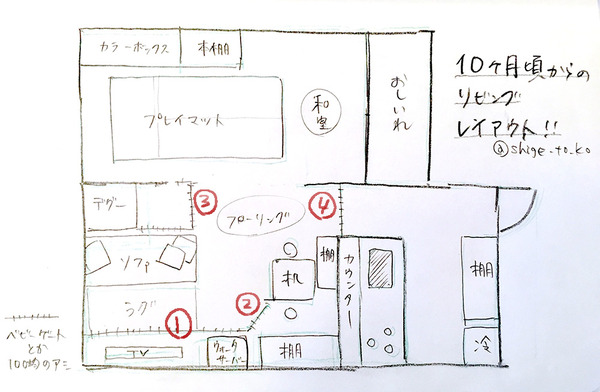 カラーボックス
本棚
おしいれ
和室
プレイマット
10ヶ月頃からの
リビング
レイアウト!!
@shige_to_ko
③
④
フローリング
ソファ
棚
カウンター
机
棚
ラグ
①
②
ベビーゲート
とか
100均のアミ
TV
ウォーター
サーバー
棚
冷